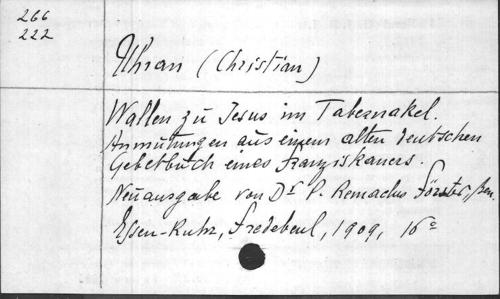 266
222
Uhran (Christian)
Wallen zu Jesus im Tabernakel.
Anmutungen aus einem alten deutschen
Gebetbuch eines Franziskaners.
Neuausgabe von Dr P. Remaclus Förster,
Essen-Ruhr, Fredebeul, 1909, 16°